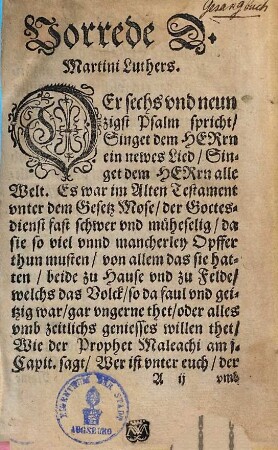 Gesangbuch
Vorrede D.
Martini Luthers.
DEr sechs vnd neun
zigst Psalm spricht/
Singet dem HERrn
ein newes Lied/ Sin-
get dem HERrn alle
Welt. Es war im Alten Testament
vnter dem Gesetz Mose/ der Gottes-
dienst fast schwer vnd müheselig/ da
sie so viel vnnd mancherley Opffer
thun musten/ von allem das sie hat-
ten/ beide zu Hause vnd zu Felde/
welchs das Volck/ so da faul vnd gei-
tzig war/ gar vngerne thet/ oder alles
vmb zeitlichs geniesses willen thet/
Wie der Prophet Maleachi am j.
Capit. sagt/ Wer ist vnter euch/ der
A ij vmb
EIGENTHUM DER STADT
AUGSBURG